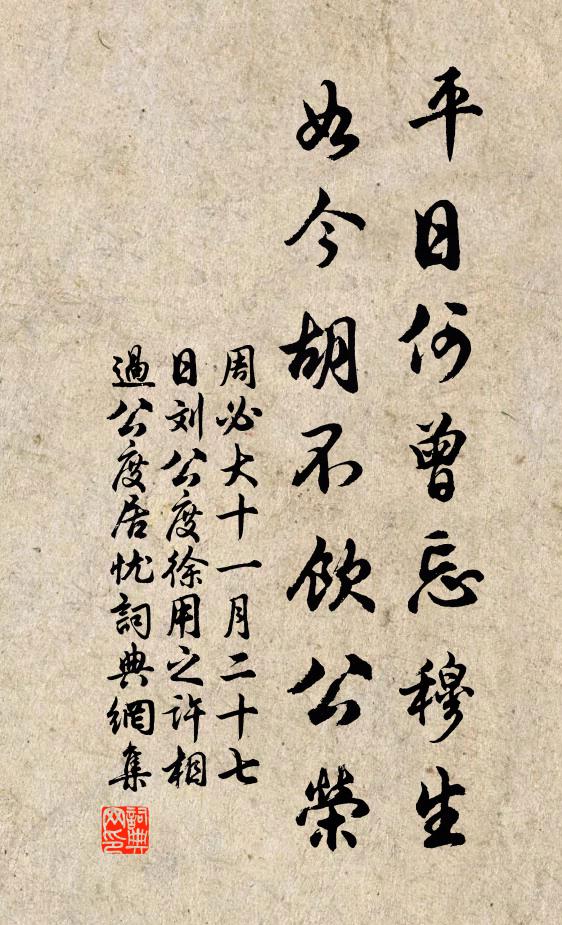 平日何曾忘穆生
如今胡不飲公榮
周必大十一月二十七
日刘公度徐用之许相
過公度居忧詞典網集
詞典
网印